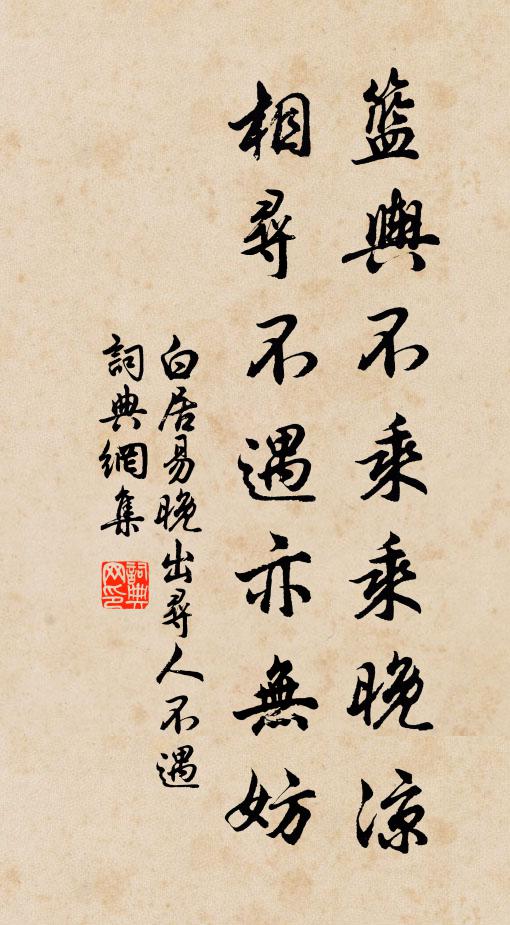 籃輿不乘乘晚涼
相尋不遇亦無妨
白居易晚出尋人不遇
詞典網集
詞典网印